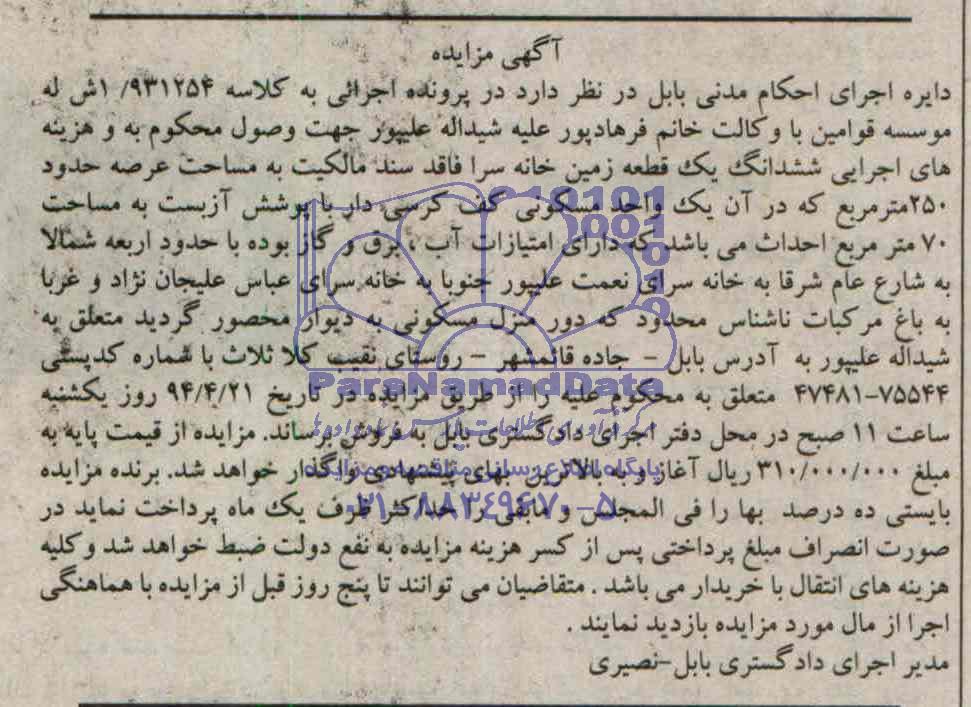 آگهی مزایده
دایره اجرای احکام مدنی بابل در نظر دارد در پرونده اجرائی به کلاسه ۹۳۱۲۵۴/ ۱ش له
موسسه قوامین با وکالت خانم فرهادپور علیه شیداله علیپور جهت وصول محکوم به و هزینه
های اجرایی ششدانگ یک قطعه زمین خانه سرا فاقد سند مالکیت به مساحت عرصه حدود
۲۵۰مترمربع که در آن یک واحد مسکونی کف کرسی دار با پوشش آزبست به مساحت
۷۰ متر مربع احداث می باشد که دارای امتیازات آب ، برق و گاز بوده با حدود اربعه شمالا
به شارع عام شرقا به خانه سرای نعمت علیپور جنوبا به خانه سرای عباس علیجان نژاد و غربا
به باغ مرکبات ناشناس محدود که دور منزل مسکونی به دیوار محصور گردید متعلق به
شیداله علیپور به آدرس بابل – جاده قائمشهر – روستای نقیب کلا ثلاث با شماره کدپستی
۴۷۴۸۱-۷۵۵۴۴ متعلق به محکوم علیه را از طریق مزایده در تاریخ ۹۴/۴/۲۱ روز یکشنبه
ساعت ۱۱ صبح در محل دفتر اجرای دادگستری بابل به فروش برساند. مزایده از قیمت پایه به
مبلغ ۳۱۰/۰۰۰/۰۰۰ ریال آغاز و به بالاترین بهای پیشنهادی واگذار خواهد شد. برنده مزایده
بایستی ده درصد بها را فی المجلس و مابقی را حداکثر ظرف یک ماه پرداخت نماید در
صورت انصراف مبلغ پرداختی پس از کسر هزینه مزایده به نفع دولت ضبط خواهد شد وکلیه
هزینه های انتقال با خریدار می باشد . متقاضیان می توانند تا پنج روز قبل از مزایده با هماهنگی
اجرا از مال مورد مزایده بازدید نمایند .
مدیر اجرای دادگستری بابل-نصیری
ParaNamadData
پایگاه اطلاع رسانی مناقصه و مزایده
۰۲۱-۸۸۳۴۹۶۷۰-۵